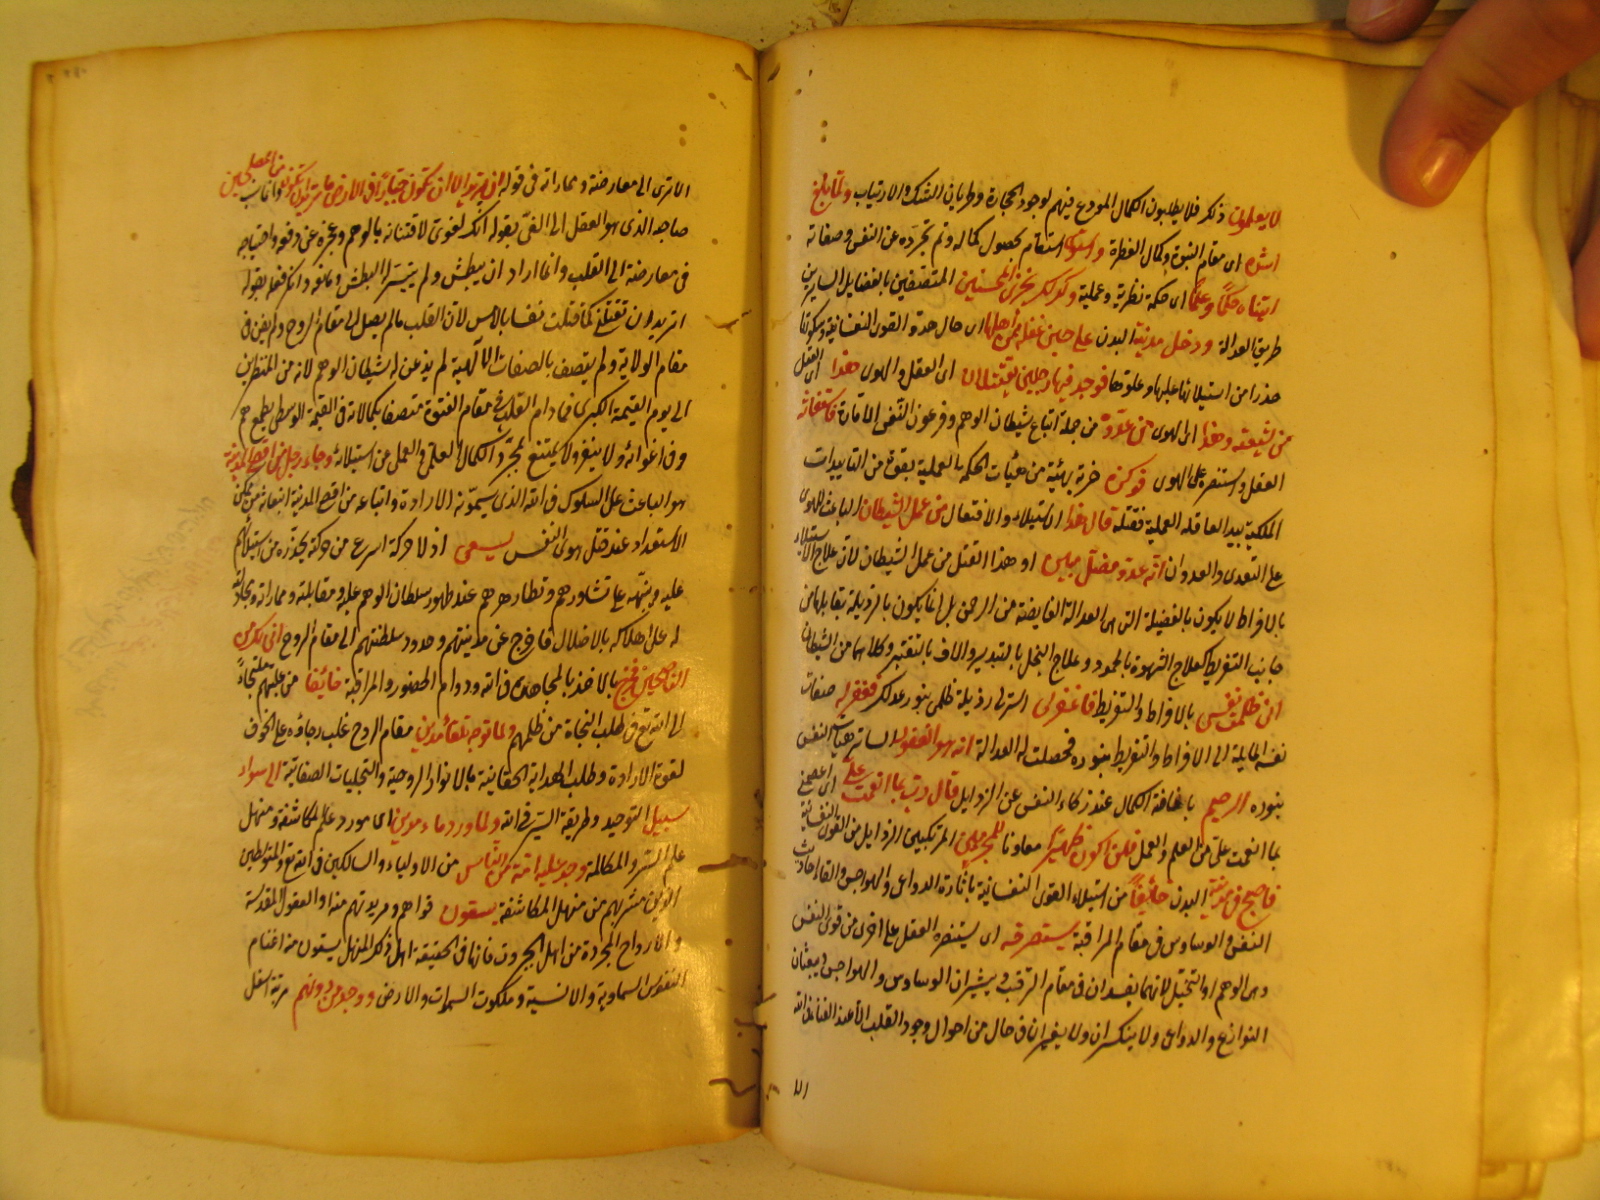 لا يعلمون ذلك فلا يطلبون الكمال المودع فيهم لوجود الحجاب وطريان الشك والارتياب ولما بلغ
اشده اى مقام الفتوة وكمال الفطرة واستوى استقام بحصول كماله وتم تجرده عن النفس وصفاته
اتيناه حكما وعلما اى حكمة نظرية وعملية وكذلك نجزى المحسنين المتصفين بالفضايل السايرين
طريق العدالة ودخل مدينة البدن على حين غفلة من اهلها اى حال هدو القوى النفسانية وسكونها
حذرا من استيلائها عليها وعلوها فوجد فيها رجلين يقتتلان اى العقل والهوى هذا اى العقل
من شيعته وهذا اى الهوى من عدوه من جملة اتباع شيطان الوهم وفرعون النفس الامارة فاستغاثه
العقل واستنصره على الهوى فوكزه ضربه بهيئة من هيئات الحكمة العملية بقوة من التاييدات
الملكية بيد العاقلة العملية فقتله قال هذا الاستيلاء والاقتتال من عمل الشيطان الباعث للهوى
على التعدى والعدوان انه عدو مضل مبين او هذا القتل من عمل الشيطان لان علاج الاستيلاء
بالافراط لا يكون بالفضيلة التى هى العدالة الفايضة من الرحمن بل انما يكون بالرذيلة يقابلها من
جانب التفريط كعلاج الشهوة بالخمود وعلاج البخل بالتبذير والاسراف بالتقتير وكلاهما من الشيطان
انى ظلمت نفسى بالافراط والتفريط فاغفر لى استر لى رذيلة ظلمى بنور عدلك فغفر له صفات
نفسه المايلة الى الافراط والتفريط بنوره فحصلت له العدالة انه هو الغفور الساتر هيئات النفس
بنوره الرحيم بافاضة الكمال عند زكاء النفس عن الرذايل قال رب بما انعمت على اى اعصمنى
بما انعمت على من العلم والعمل فلن اكون ظهيرا معاونا للمجرمين المرتكبين الرذايل من القوى النفسانية
فاصبح فى مدينة البدن خائفا من استيلاء القوى النفسانية باثارة الدواعى والهواجس والقاء احاديث
النفس والوساوس فى مقام المراقبة يستصرخه اى يستنصره العقل على اخرى من قوى النفس
وهى الوهم او التخيل لانهما يفسدان فى مقام الترقب ويثيران الوساوس والهواجس ويبعثان
النوازع والدواعى ولا ينكسران ولا يفتران فى حال من احوال وجود القلب الا عند الفناء فى الله
الا
الا ترى الى معارضته ومماراته فى قوله ان تريد الا ان تكون جبارا فى الارض وما تريد ان تكون من المصلحين وانما نسب
صاحبه الذى هو العقل الى الغى بقوله انك لغوى لافتتانه بالوهم وعجزه عن دفعه واحتياجه
فى معارضته الى القلب وانما اراد ان يبطش ولم يتيسر له البطش ومانعه وانكر فعله بقوله
اتريد ان تقتلنى كما قتلت نفسا بالامس لان القلب ما لم يصل الى مقام الروح ولم يفن فى
مقام الولاية ولم يتصف بالصفات الالهية لم يذعن له شيطان الوهم لانه من المنظرين
الى يوم القيمة الكبرى فما دام القلب فى مقام الفتوة متصفا بكمالاته فى القيمة الوسطى يطمع هو
فى اغوائه ولا ينقهر ولا يمتنع بمجرد الكمال العلمى والعملى من استيلائه وجاء رجل من اقصى المدينة
هو الباعث على السلوك فى الله الذى يسمونه الارادة واتباعه من اقصى المدينة انبعاثه من مكمن
الاستعداد عند قتل هوى النفس يسعى اذ لا حركة اسرع من حركته يحذره من استيلائهم
عليه وينبهه على تشاورهم وتظاهرهم عند ظهور سلطان الوهم عليه ومقابلته ومماراته ومجادلته
له على اهلاكه بالاضلال فاخرج عن مدينتهم وحدود سلطنتهم الى مقام الروح انى لك من
الناصحين فخرج بالاخذ بالمجاهدة فى الله ودوام الحضور والمراقبة خائفا من غلبتهم ملتجأ
الى الله تع فى طلب النجاة من ظلمهم ولما توجه تلقاء مدين مقام الروح غلب رجاؤه على الخوف
لقوة الارادة وطلب الهداية الحقانية بالانوار الروحية والتجليات الصفاتية الى سواء
سبيل التوحيد وطريقة السير فى الله ولما ورد ماء مدين اى مورد علم المكاشفة ومنهل
علم السر والمكالمة وجد عليه امة من الناس من الاولياء والسالكين فى الله تع والمتوسطين
الذين مشربهم من منهل المكاشفة يسقون قواهم ومريديهم منه او العقول المقدسة
والارواح المجردة من اهل الجبروت فانها فى الحقيقة اهل ذلك المنهل يسقون منه اغنام
النفوس السماوية والانسية وملكوت السموات والارض ووجد من دونهم مرتبة اسفل